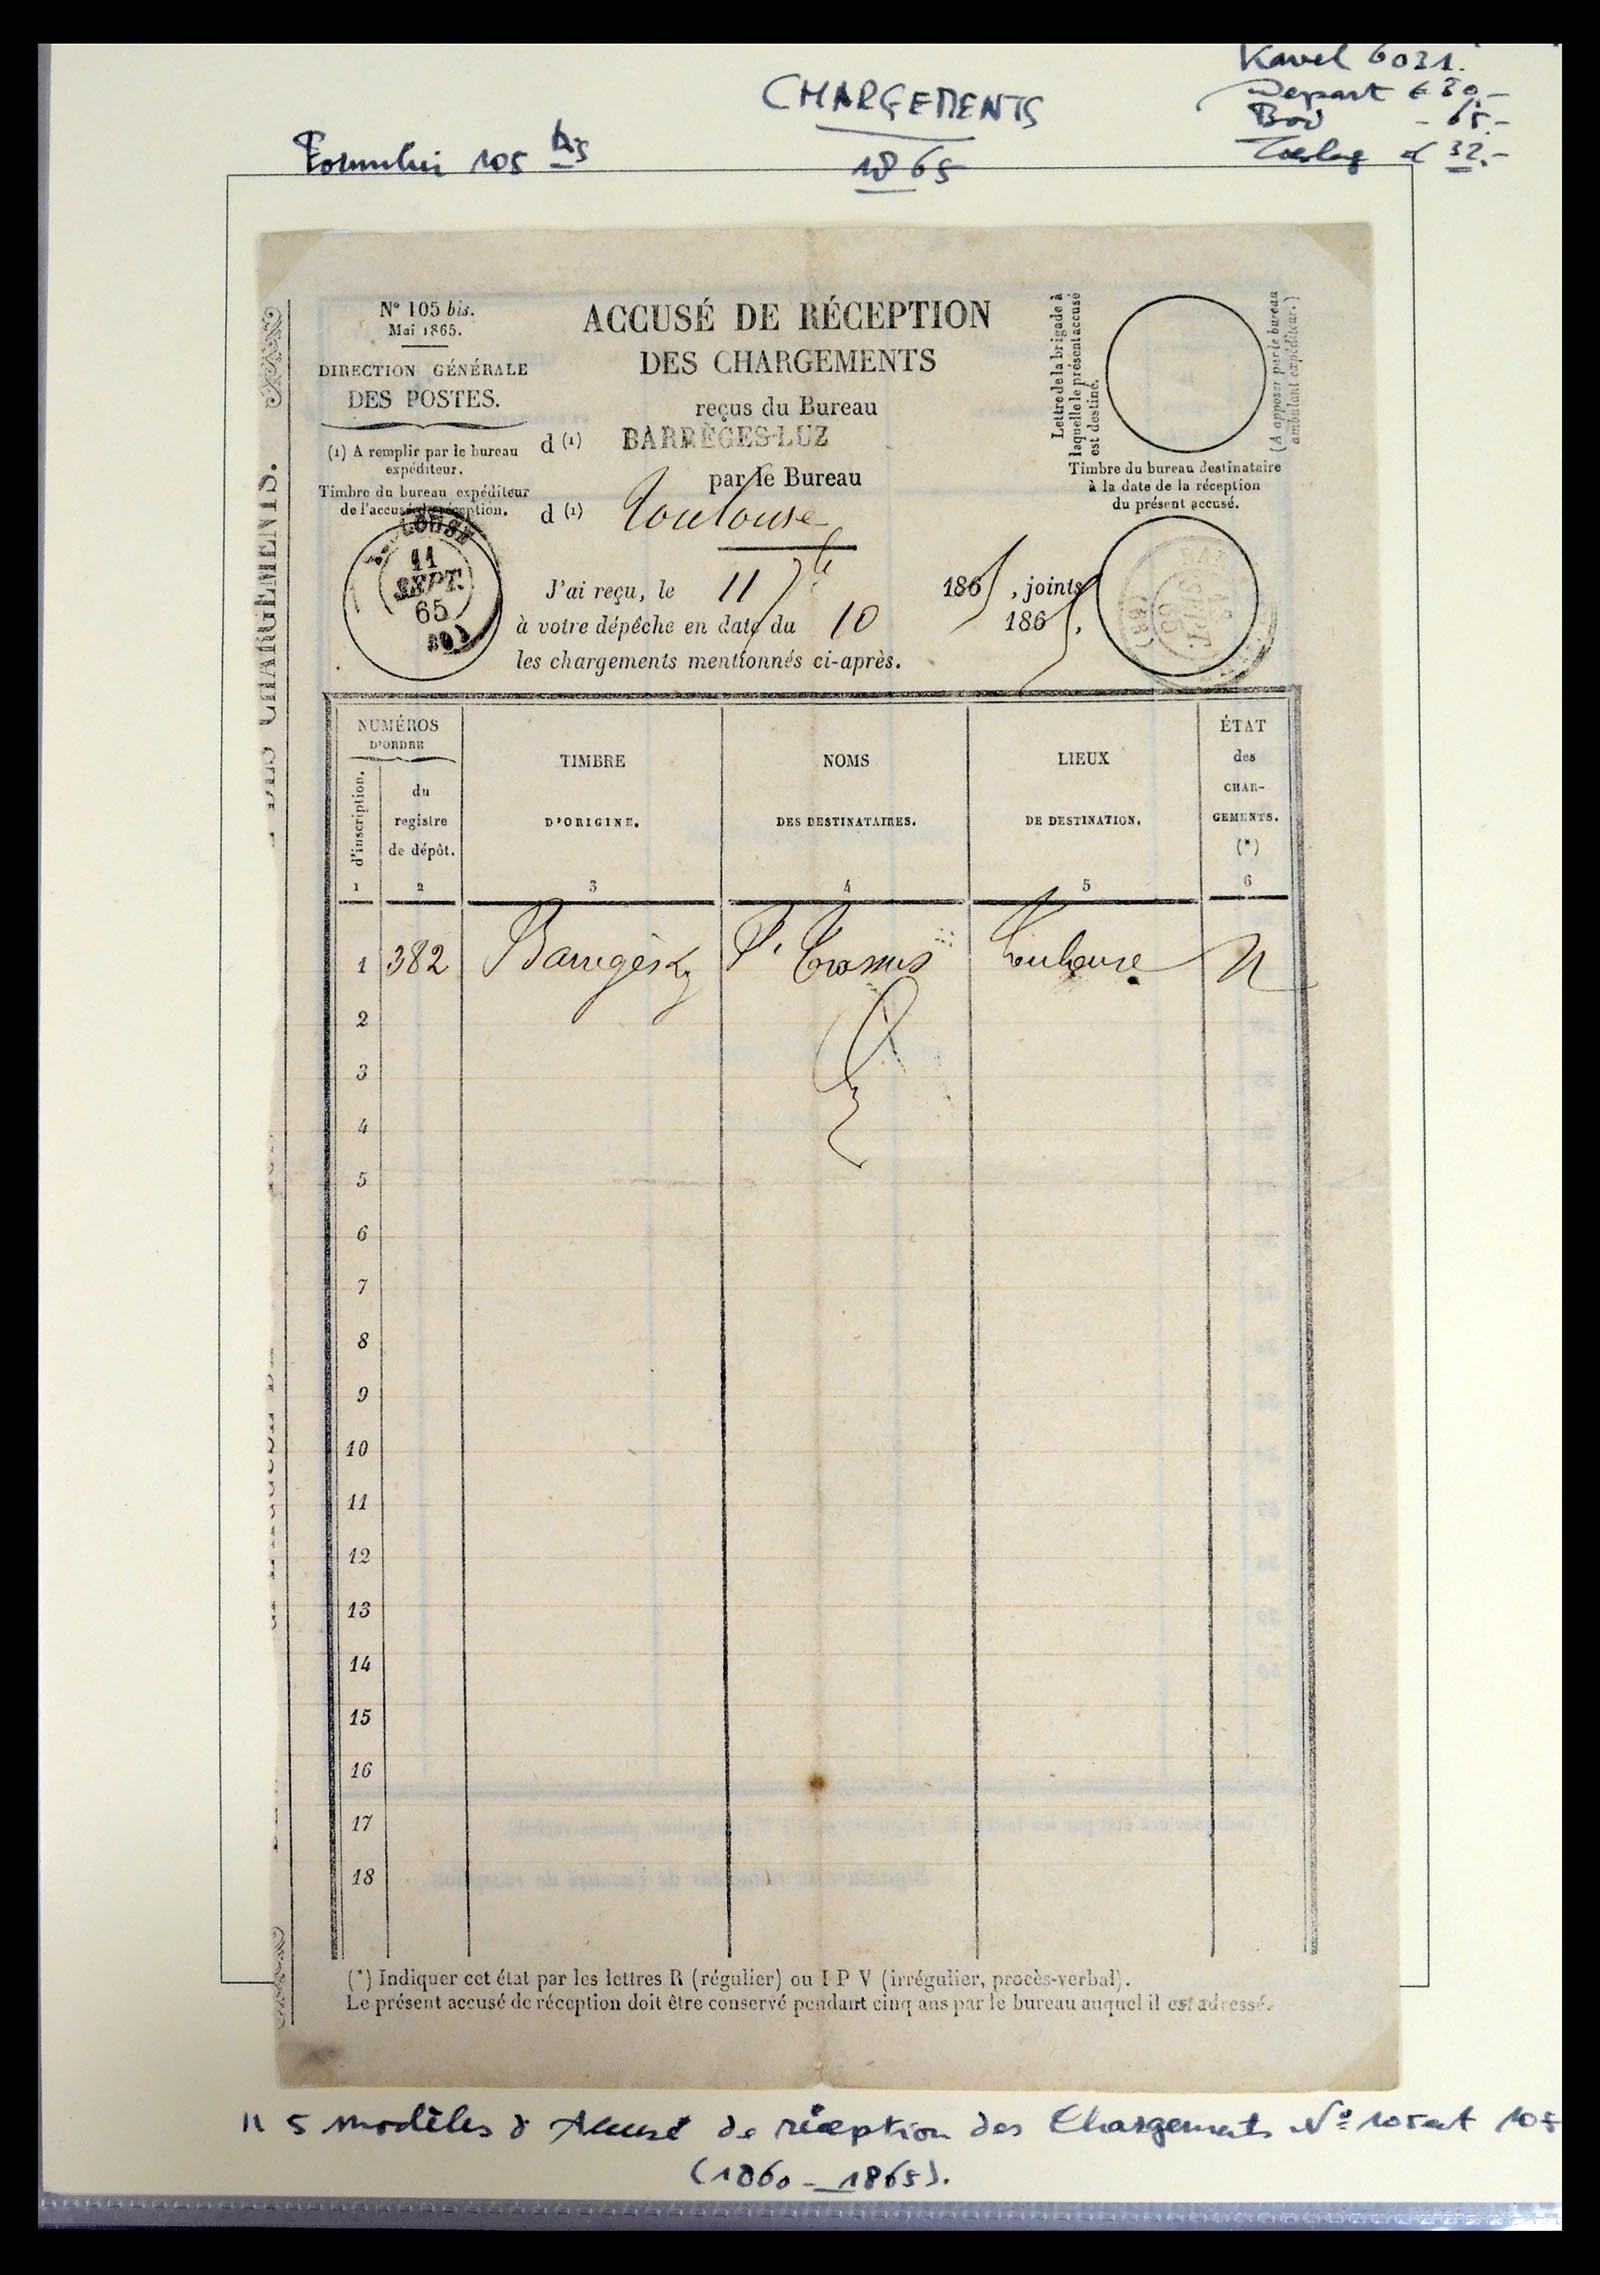 Kavel 6031.
CHARGEMENTS
Depart € 30,-
Bod - 65.-
32.-
Formulier 105 bis
1865
N° 105 bis.
Mai 1865.
DIRECTION GÉNÉRALE
DES POSTES.
(1) A remplir par le bureau
expéditeur.
Timbre du bureau expéditeur
de l'accusé de réception.
TOULOUSE
11
SEPT.
65
(30)
ACCUSÉ DE RÉCEPTION
DES CHARGEMENTS
reçus du Bureau
d (1) BARRÈGES-LUZ
par le Bureau
d (1) Toulouse
J'ai reçu, le 11 7bre 1865, joints
à votre dépêche en date du 10 1865,
les chargements mentionnés ci-après.
Lettre de la brigade à
laquelle le présent accusé
est destiné.
(A apposer par le bureau
ambulant expéditeur.)
Timbre du bureau destinataire
à la date de la réception
du présent accusé.
SEPT.
DES CHARGEMENTS.
NUMÉROS
D'ORDRE
d'inscription.
du
registre
de dépôt.
TIMBRE
D'ORIGINE.
NOMS
DES DESTINATAIRES.
LIEUX
DE DESTINATION.
ÉTAT
des
CHAR-
GEMENTS.
(*)
1 2 3 4 5 6
1 382 Toulouse
2
3
4
5
6
7
8
9
10
11
12
13
14
15
16
17
18
(*) Indiquer cet état par les lettres R (régulier) ou I P V (irrégulier, procès-verbal).
Le présent accusé de réception doit être conservé pendant cinq ans par le bureau auquel il est adressé.
5 modèles d'Accusé de réception des Chargements N° 105 et 105
(1860 - 1865).